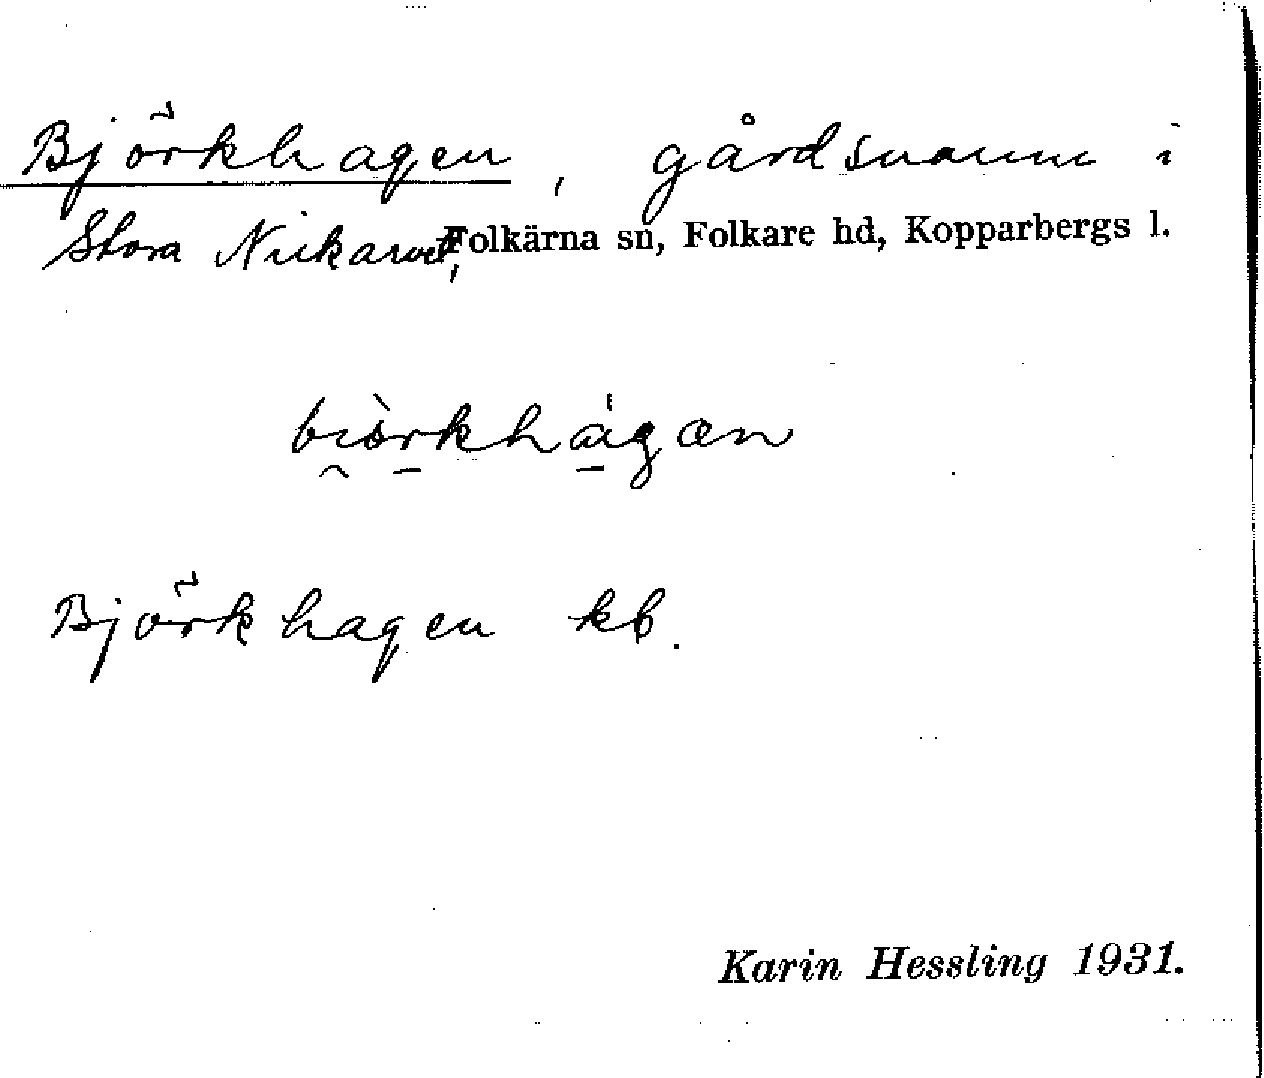 Björkhagen, gårdsnamn i
Stora Nickarvet, Folkärna sn, Folkare hd, Kopparbergs l.
bi̯òrkhágæn
Björkhagen kb.
Karin Hessling 1931.